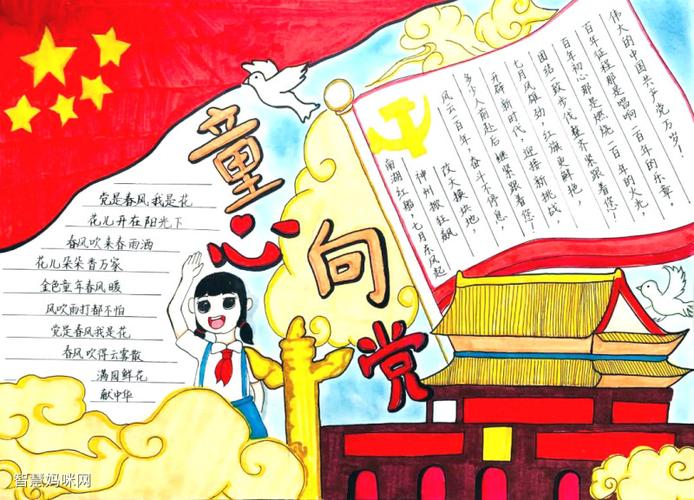 童心向党
党是春风我是花
花儿开在阳光下
春风吹来春雨洒
花儿朵朵香万家
金色童年春风暖
风吹雨打都不怕
党是春风我是花
春风吹得云雾散
满园鲜花
献中华
南湖红船,七月东风起
神州掀狂飙
改天换地
风云一百年,奋斗不停息,
多少人前赴后继紧跟着您!
开辟新时代,迎接新挑战,
七月风雄劲,红旗更鲜艳,
团结一致步伐整齐紧跟着您!
百年初心那是燃烧一百年的火光,
百年征程那是唱响一百年的乐章
伟大的中国共产党万岁!
智慧妈咪网